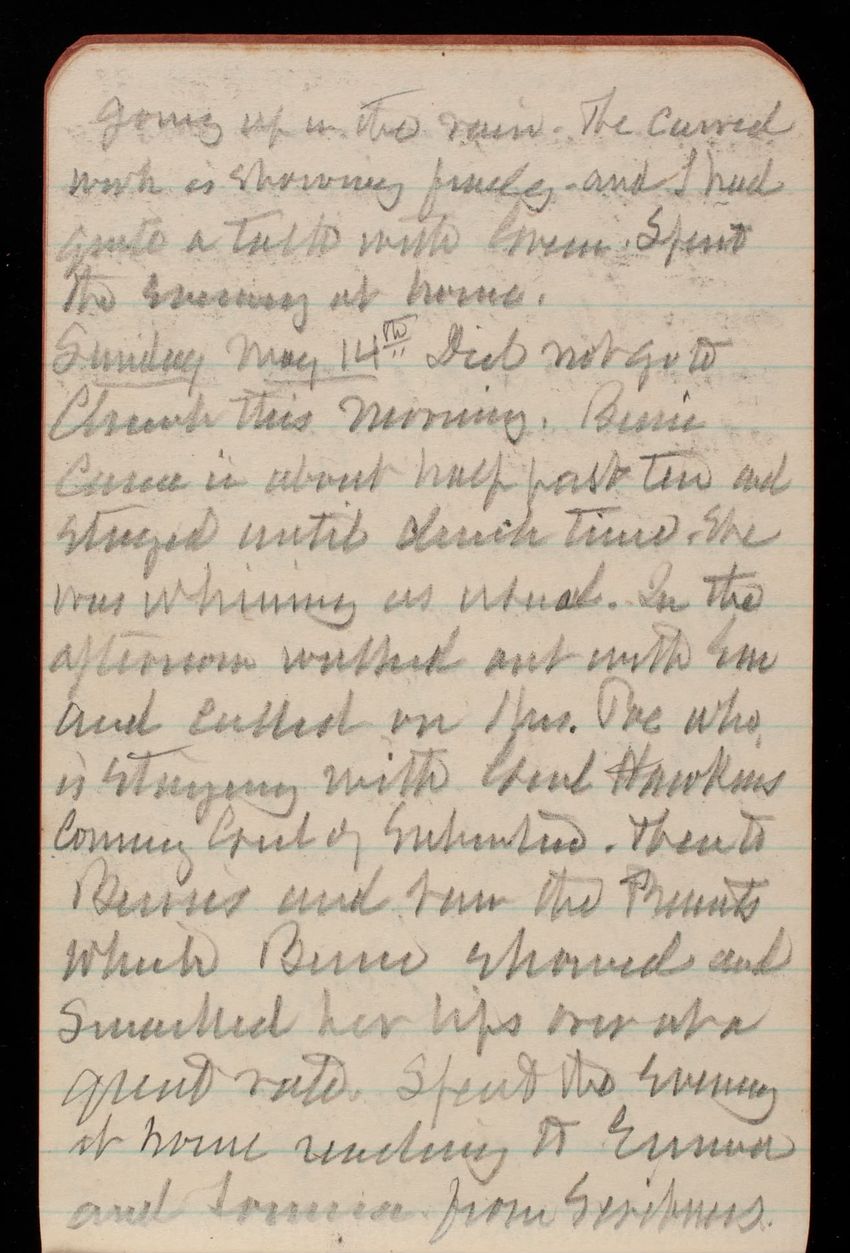 going up in the rain. The carved
work is showing finely and I had
quite a talk with Green. Spent
the evening at home.
Sunday May 14th Did not go to
Church this morning. Bernie
Came in about half past ten and
stayed until lunch time. She
was whining as usual. In the
afternoon walked out with Em
and called on Mrs. Poe who
is staying with Genl Hawkins
Coming Genl of Subsistence. Then to
Bernies and saw the Presents
which Bernie showed and
Smacked her lips over at a
great rate. Spent the evening
at home reading to Emma
and from Scribners.